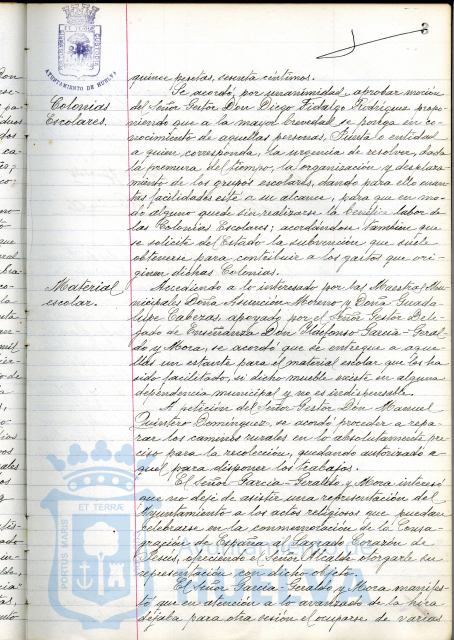 AYUNTAMIENTO DE HUELVA
quince pesetas, sesenta céntimos.
Colonias
Escolares.
Se acordó, por unanimidad, aprobar moción
del Señor Gestor Don Diego Fidalgo Rodríguez propo-
niendo que a la mayor brevedad se ponga en co-
nocimiento de aquellas personas, Junta o entidad
a quien corresponda, la urgencia de resolver, dada
la premura del tiempo, la organización y desplaza-
miento de los grupos escolares, dando para ello cuan-
tas facilidades esté a su alcance, para que en mo-
do alguno quede sin realizarse la benéfica labor de
las Colonias Escolares; acordándose también que
se solicite del Estado la subvención que suele
obtenerse para contribuir a los gastos que ori-
ginen dichas Colonias.
Material
escolar.
Accediendo a lo interesado por las Maestras Mu-
nicipales Doña Asunción Moreno y Doña Guada-
lupe Cabezas, apoyado por el Señor Gestor Dele-
gado de Enseñanza Don Ildefonso García-Geral-
do y Mora, se acordó que se entregue a aque-
llas un estante para el material escolar que les ha
sido facilitado, si dicho mueble existe en alguna
dependencia municipal y no es indispensable.
A petición del Señor Gestor Don Manuel
Quintero Domínguez, se acordó proceder a repa-
rar los caminos rurales en lo absolutamente pre-
ciso para la recolección, quedando autorizado a-
quel para disponer los trabajos.
El Señor García-Geraldo y Mora interesó
que no deje de asistir una representación del
Ayuntamiento a los actos religiosos que puedan
celebrarse en la conmemoración de la Consa-
gración de España al Sagrado Corazón de
Jesús, ofreciendo el Señor Alcalde otorgarle su
representación con dicho objeto.
El Señor García-Geraldo y Mora manifes-
tó que en atención a lo avanzado de la hora
dejaba para otra sesión el ocuparse de varias
PORTUS MARIS ET TERRAE